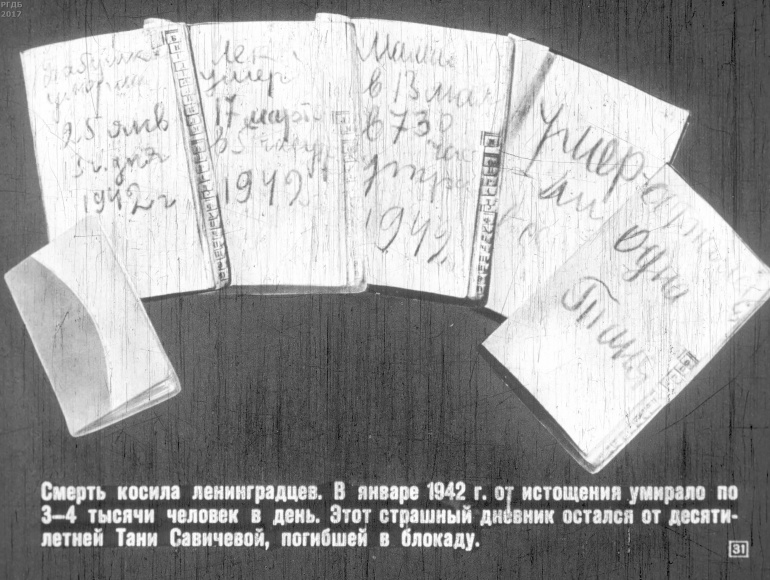 РГДБ
2017
Бабушка
умерла
25 янв
3 ч. дня
1942 г
Лёка
умер
17 март
в 5 часут
1942
Мама
в 13 мая
в 730
час
утра
1942
умер
одна
Таня
Смерть косила ленинградцев. В январе 1942 г. от истощения умирало по
3–4 тысячи человек в день. Этот страшный дневник остался от десяти-
летней Тани Савичевой, погибшей в блокаду.
31